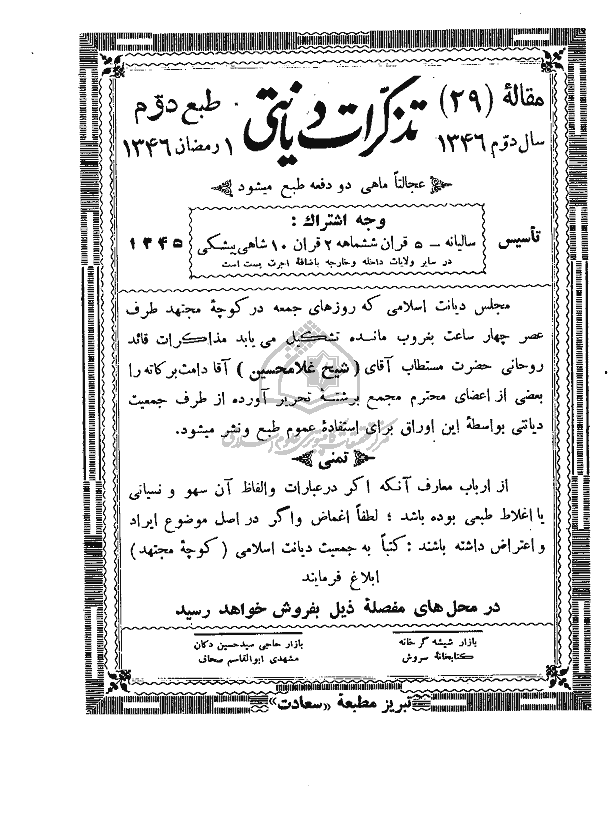 مقالهٔ (۲۹) تذکّرات دیانتی طبع دوّم
سال دوّم ۱۳۴۶ ۱ رمضان ۱۳۴۶
عجالتاً ماهی دو دفعه طبع میشود
تأسیس ۱۳۴۵
وجه اشتراک :
سالیانه ــ ۵ قران ششماهه ۲ قران ۱۰ شاهی پیشکی
در سایر ولایات داخله وخارجه باضافهٔ اجرت پست است
مجلس دیانت اسلامی که روزهای جمعه در کوچهٔ مجتهد طرف
عصر چهار ساعت بغروب مانده تشکیل می یابد مذاکرات قائد
روحانی حضرت مستطاب آقای ( شیخ غلامحسین ) آقا دامت برکاته را
بعضی از اعضای محترم مجمع برشتهٔ تحریر آورده از طرف جمعیت
دیانتی بواسطهٔ این اوراق برای استفادهٔ عموم طبع ونشر میشود.
تمنی
از ارباب معارف آنکه اکر درعبارات والفاظ آن سهو و نسیانی
یا اغلاط طبعی بوده باشد ؛ لطفاً اغماض واگر در اصل موضوع ایراد
و اعتراض داشته باشند : کتباً به جمعیت دیانت اسلامی ( کوچهٔ مجتهد )
ابلاغ فرمایند
در محل های مفصلهٔ ذیل بفروش خواهد رسید
بازار شیشه گر خانه
کتابخانهٔ سروش
بازار حاجی سیدحسین دکان
مشهدی ابوالقاسم صحاف
تبریز مطبعهٔ «سعادت»